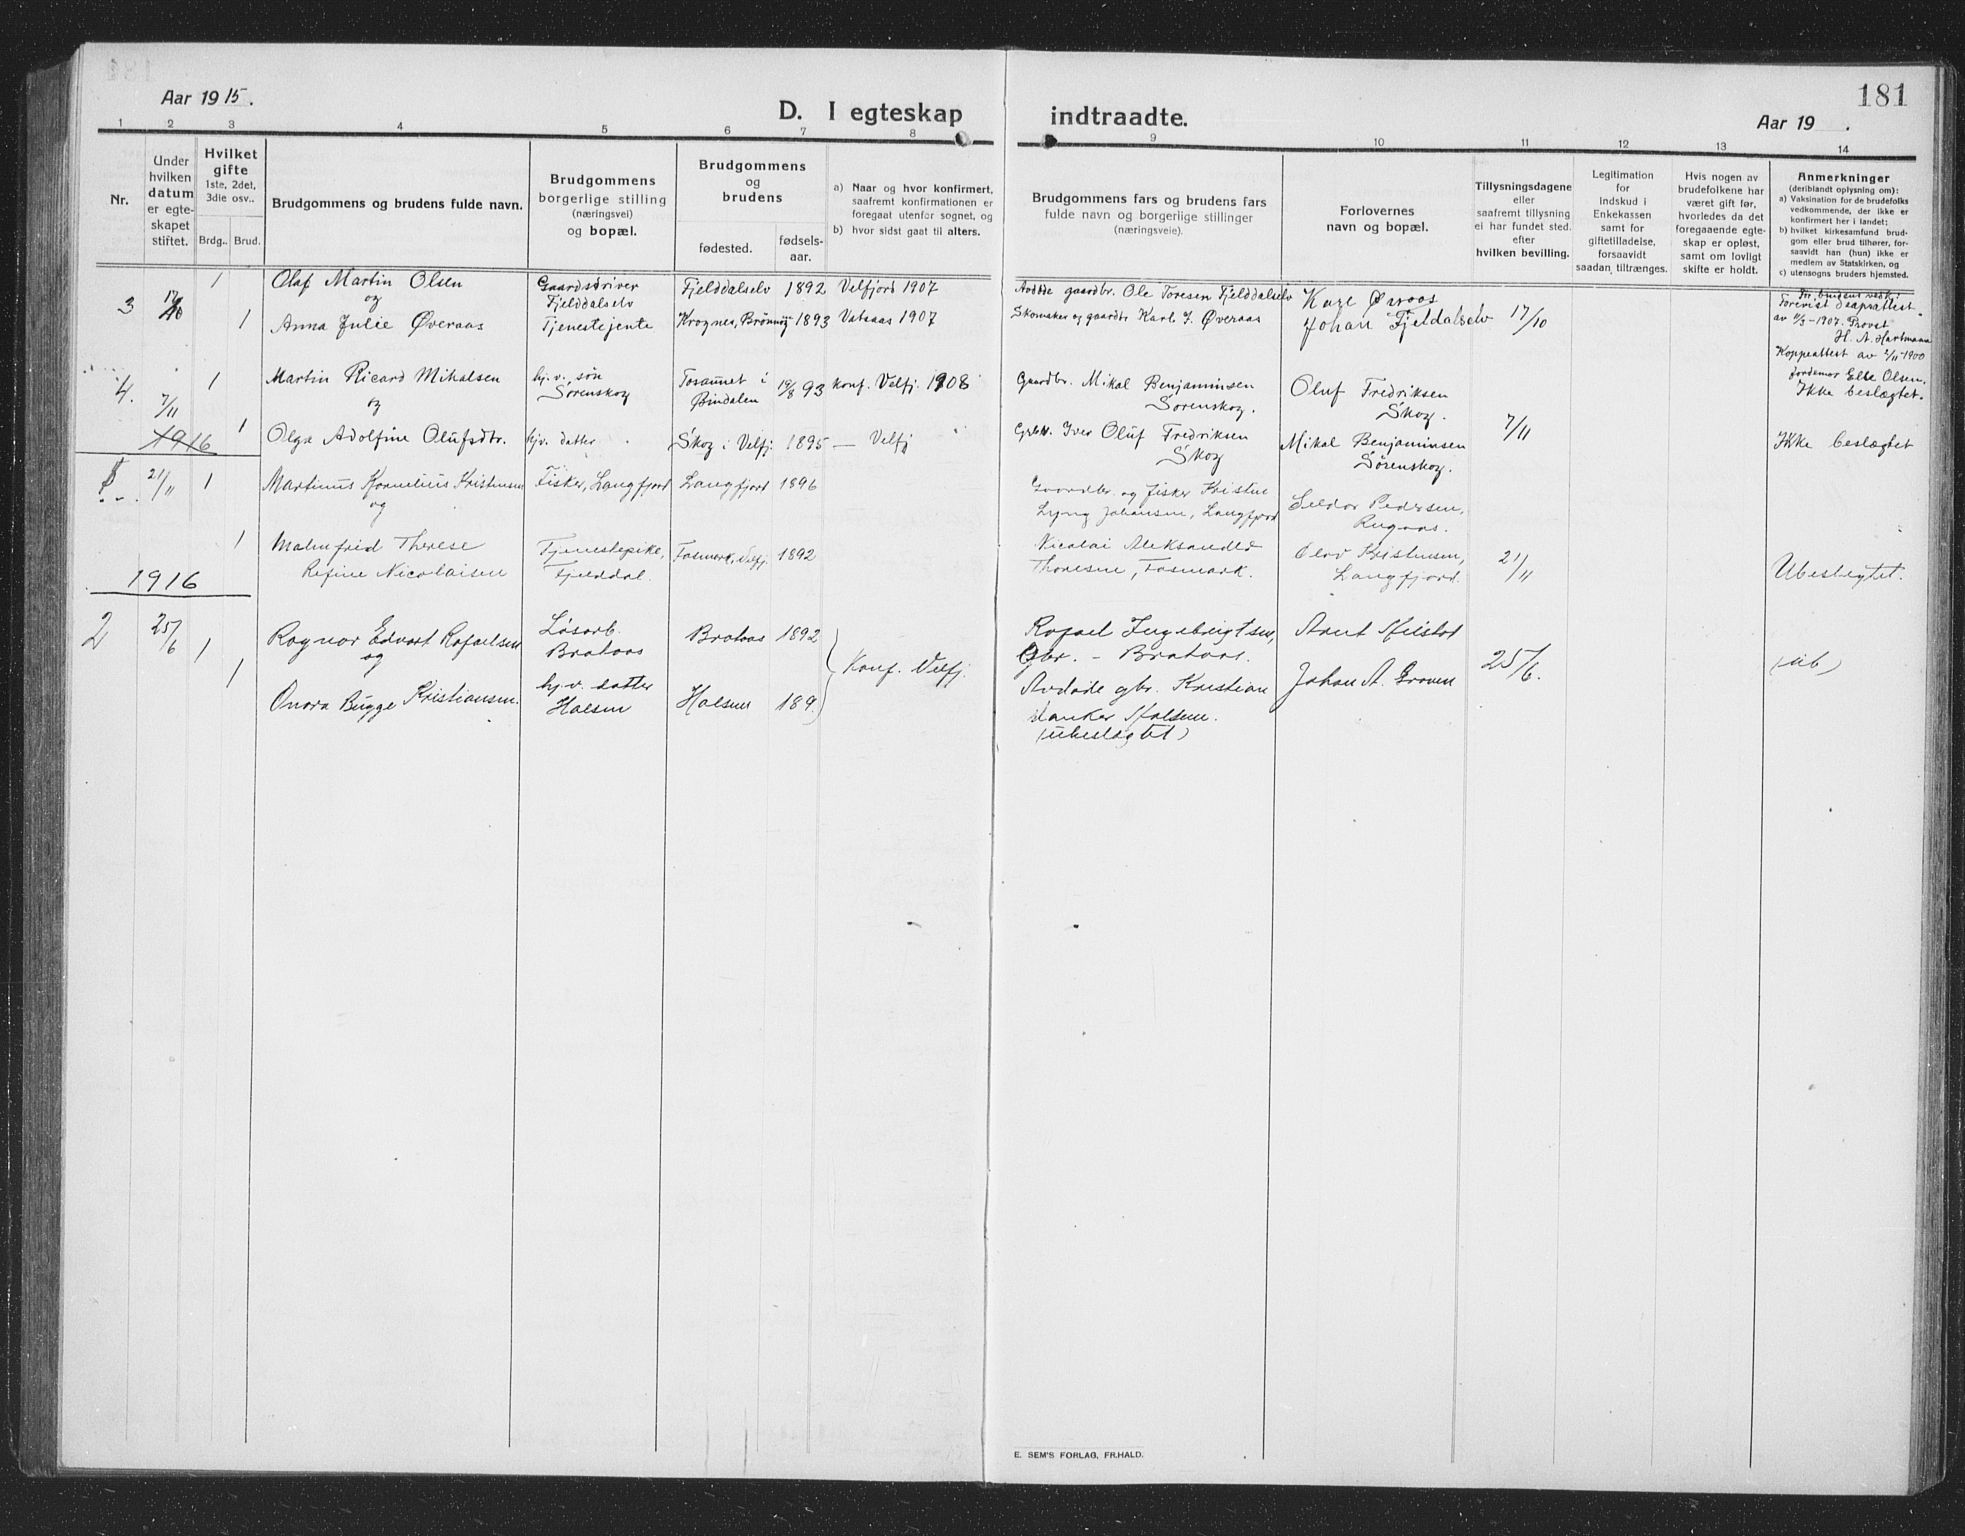 181
Aar 1915.
D. I egteskap indtraadte.
Aar 19 .
1 2 3 4 5 6 7 8 9 10 11 12 13 14
Nr.
Under
hvilken
datum
er egte-
skapet
stiftet.
Hvilket
gifte
1ste, 2det,
3die osv..
Brdg.. Brud.
Brudgommens og brudens fulde navn.
Brudgommens
borgerlige stilling
(næringsvei)
og bopæl.
Brudgommens
og
brudens
fødested.
fødsels-
aar.
a) Naar og hvor konfirmert,
saafremt konfirmationen er
foregaat utenfor sognet, og
b) hvor sidst gaat til alters.
Brudgommens fars og brudens fars
fulde navn og borgerlige stillinger
(næringsveie).
Forlovernes
navn og bopæl.
Tillysningsdagene
eller
saafremt tillysning
ei har fundet sted.
efter
hvilken bevilling.
Legitimation
for
Indskud i
Enkekassen
samt for
giftetilladelse,
forsaavidt
saadan tiltrænges.
Hvis nogen av
brudefolkene har
været gift før,
hvorledes da det
foregaaende egte-
skap er opløst,
samt om lovligt
skifte er holdt.
Anmerkninger
(deriblandt oplysning om):
a) Vaksination for de brudefolks
vedkommende, der ikke er
konfirmert her i landet;
b) hvilket kirkesamfund brud-
gom eller brud tilhører, for-
saavidt han (hun) ikke er
medlem av Statskirken, og
c) utensogns bruders hjemsted.
3 1 Olaf Martin Olsen
og
1 Anna Julie Øveraas
Gaardsdriver
Fjelddalselv
Tjenestejente
Fjelddalselv 1892 Velfjord 1907
Krognes, Brønnøy 1893 Vatsaas 1907
gaardbr. Ole Toresen Fjelddalselv
Skomaker og gaardbr. Karl J. Øveraas
Johan Fjeldalselv
17/10
For brudens vedk.:
Forevist daapsattest
av 11/3-1907. Provst
H. A. Hartmann
Koppeattest av 2/11 1900
Jordemor Else Olsen.
Ikke beslægtet.
4. 7/11 1 Martin Ricard Mikalsen
og
1 Olga Adolfine Olufsdtr.
hj.v. søn
Sørenskog
hjv. datter
Tosaunet i
Bindalen 19/8 93 konf. Velfj. 1908
Skog i Velfj. 1895 — Velfj
Gaardbr. Mikal Benjaminsen
Sørenskog.
Iver Oluf Fredriksen
Skog
Oluf Fredriksen
Skog.
Mikal Benjaminsen
Sørenskog.
7/11
Ikke beslægtet
1916
21/11 1 Martinus Kornelius Kristensen
og
1 Malmfrid Therese
Refine Nicolaisen
Fisker, Langfjord
Tjenestepike,
Fjelddal.
Langfjord 1896
Fosmark, Velfj. 1892
Gaardbr. og fisker Kristen
Lyng Johansen, Langfjord
Nicolai Aleksander
Thoresen, Fosmark.
Seldor Pedersen,
Rugaas.
Olav Kristensen,
Langfjord.
21/11
Ubeslegtet.
1916
2 25/6 1 Ragnar Edvart Rafaelsen
og
1 Onara Bugge Kristiansen.
Løsarb.
Brataas
hj.v. datter
Halsen
Brataas 1892
Halsen 189
Konf. Velfj.
Rafael Ingebrigtsen,
Gbr. – Brataas.
Avdøde gbr. Kristian
Hanker Halsen.
(ubeslægtet)
Arnt Hilstad
Johan A. Graven
25/6.
(ub)
E. SEM'S FORLAG, FR.HALD.